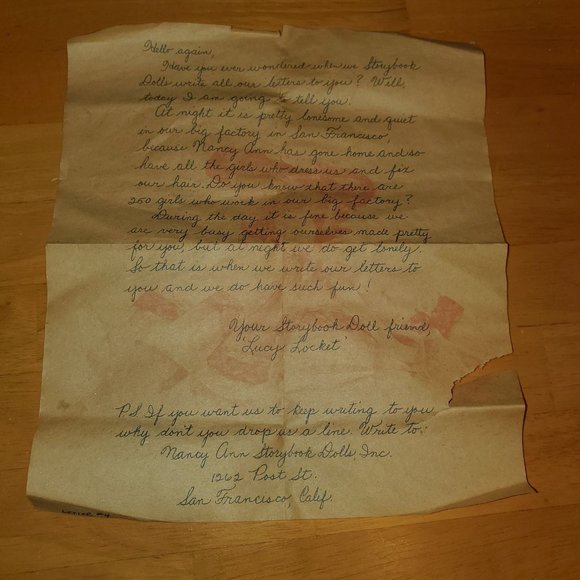 Hello again,
Have you ever wondered when we Storybook
Dolls write all our letters to you? Well,
today I am going to tell you.
At night it is pretty lonesome and quiet
in our big factory in San Francisco,
because Nancy Ann has gone home and so
have all the girls who dress us and fix
our hair. Do you know that there are
250 girls who work in our big factory?
During the day it is fine because we
are very busy getting ourselves made pretty
for you, but at night we do get lonely.
So that is when we write our letters to
you and we do have such fun!
Your Storybook Doll friend,
'Lucy Locket'
P.S. If you want us to keep writing to you,
why don't you drop us a line. Write to:
Nancy Ann Storybook Dolls, Inc.
1262 Post St.
San Francisco, Calif.
LETTER #4